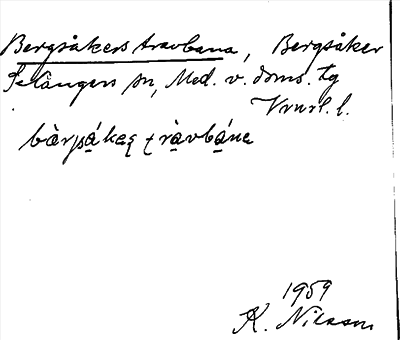 Bergsåkers travbana, Bergsåker
Selångers sn, Med. v. doms. tg
l. l.
bàrpsá̱kạṣ trà̱vbá̱na
1959
K. Nilsson